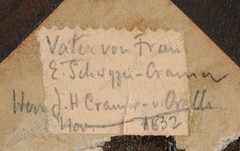 Vater von Frau
E. Schwyzer-Cramer
Herr J. H Cramer-v. Orelli
Nov. 1832